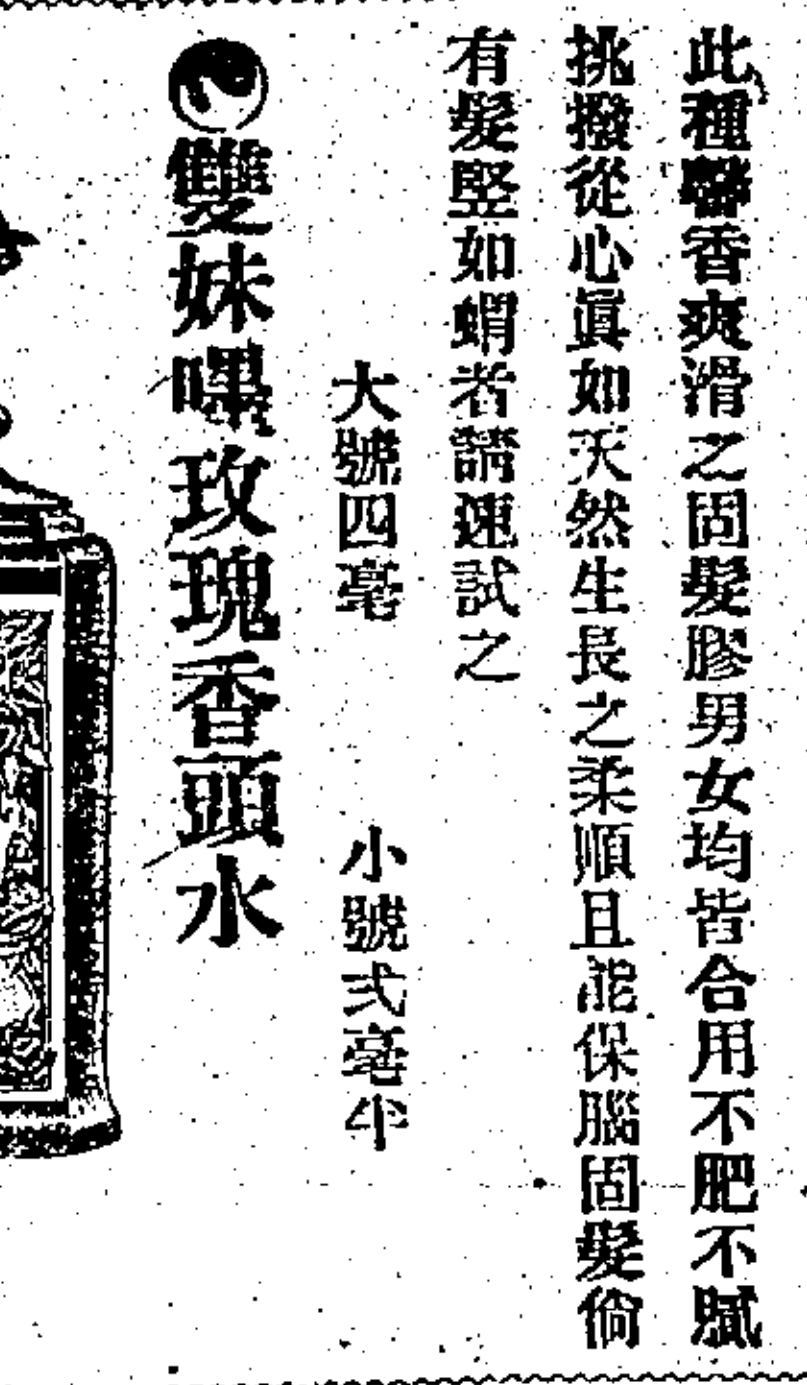 此種馨香爽滑之固髮膠男女均皆合用不肥不膩
挑撥從心眞如天然生長之柔順且能保腦固髮倘
有髮堅如蝟者請速試之
大號四毫　小號弍毫半
雙妹嘜玫瑰香頭水